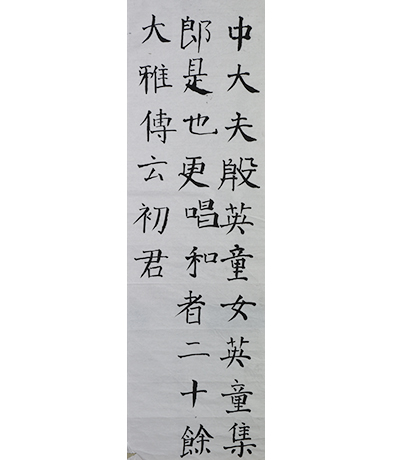 中大夫殷英童女英童集
郎是也更唱和者二十餘
大雅傳云初君